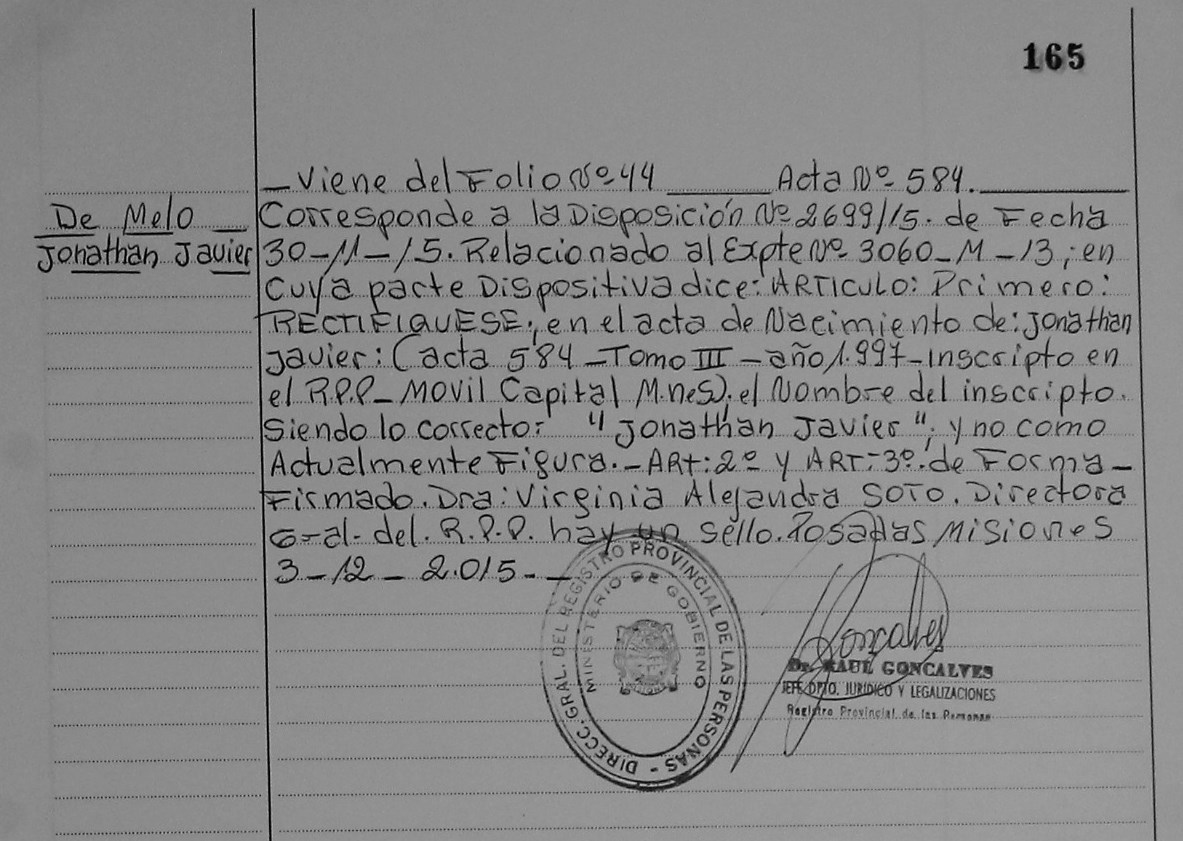 165
— Viene del Folio Nº 44 ______ Acta Nº 584. ______
De Melo
Jonathan Javier
Corresponde a la Disposición Nº 2699/15. de Fecha
30-11-15. Relacionado al Expte Nº 3060-M-13; en
Cuya parte Dispositiva dice: ARTICULO: Primero:
RECTIFIQUESE; en el acta de Nacimiento de: Jonathan
Javier: (acta 584 - Tomo III - año 1.997 - inscripto en
el R.P.P - MOVIL Capital M.nes). el Nombre del inscripto.
Siendo lo correcto: "Jonathan Javier"; y no como
Actualmente Figura. - ART: 2º y ART: 3º: de Forma -
Firmado. Dra: Virginia Alejandra SOTO. Directora
Gral. del. R.P.P. hay un sello. Posadas MISIONES
3-12-2.015. -
DIRECC. GRAL. DEL REGISTRO PROVINCIAL DE LAS PERSONAS -
MINISTERIO DE GOBIERNO
Goncalves
Dr. RAUL GONCALVES
JEFE DPTO. JURIDICO Y LEGALIZACIONES
Registro Provincial de las Personas